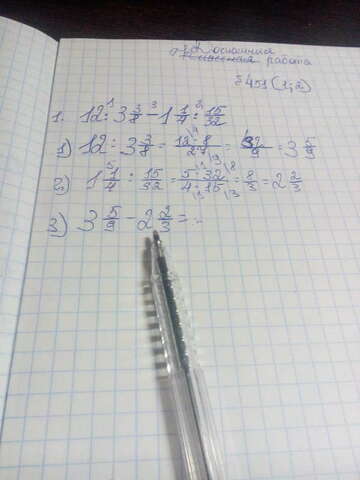 Домашняя
Классная работа
№ 491 (1; 2)
1. 12 : 3 3/8 - 1 1/4 : 15/32
1) 12 : 3 3/8 = 12·8/27 = 32/9 = 3 5/9
2) 1 1/4 : 15/32 = 5·32/4·15 = 8/3 = 2 2/3
3) 3 5/9 - 2 2/3 = ..